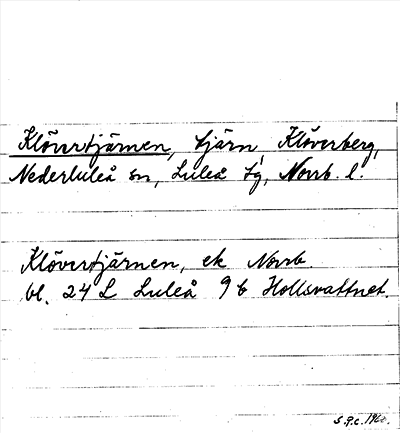 Klövertjärnen, tjärn, Klöverberg,
Nederluleå sn, Luleå tg, Norrb. l.
Klövertjärnen, ek Norrb.
bl. 24 L Luleå 9 b Hollsvattnet.
S.P.C. 1960.